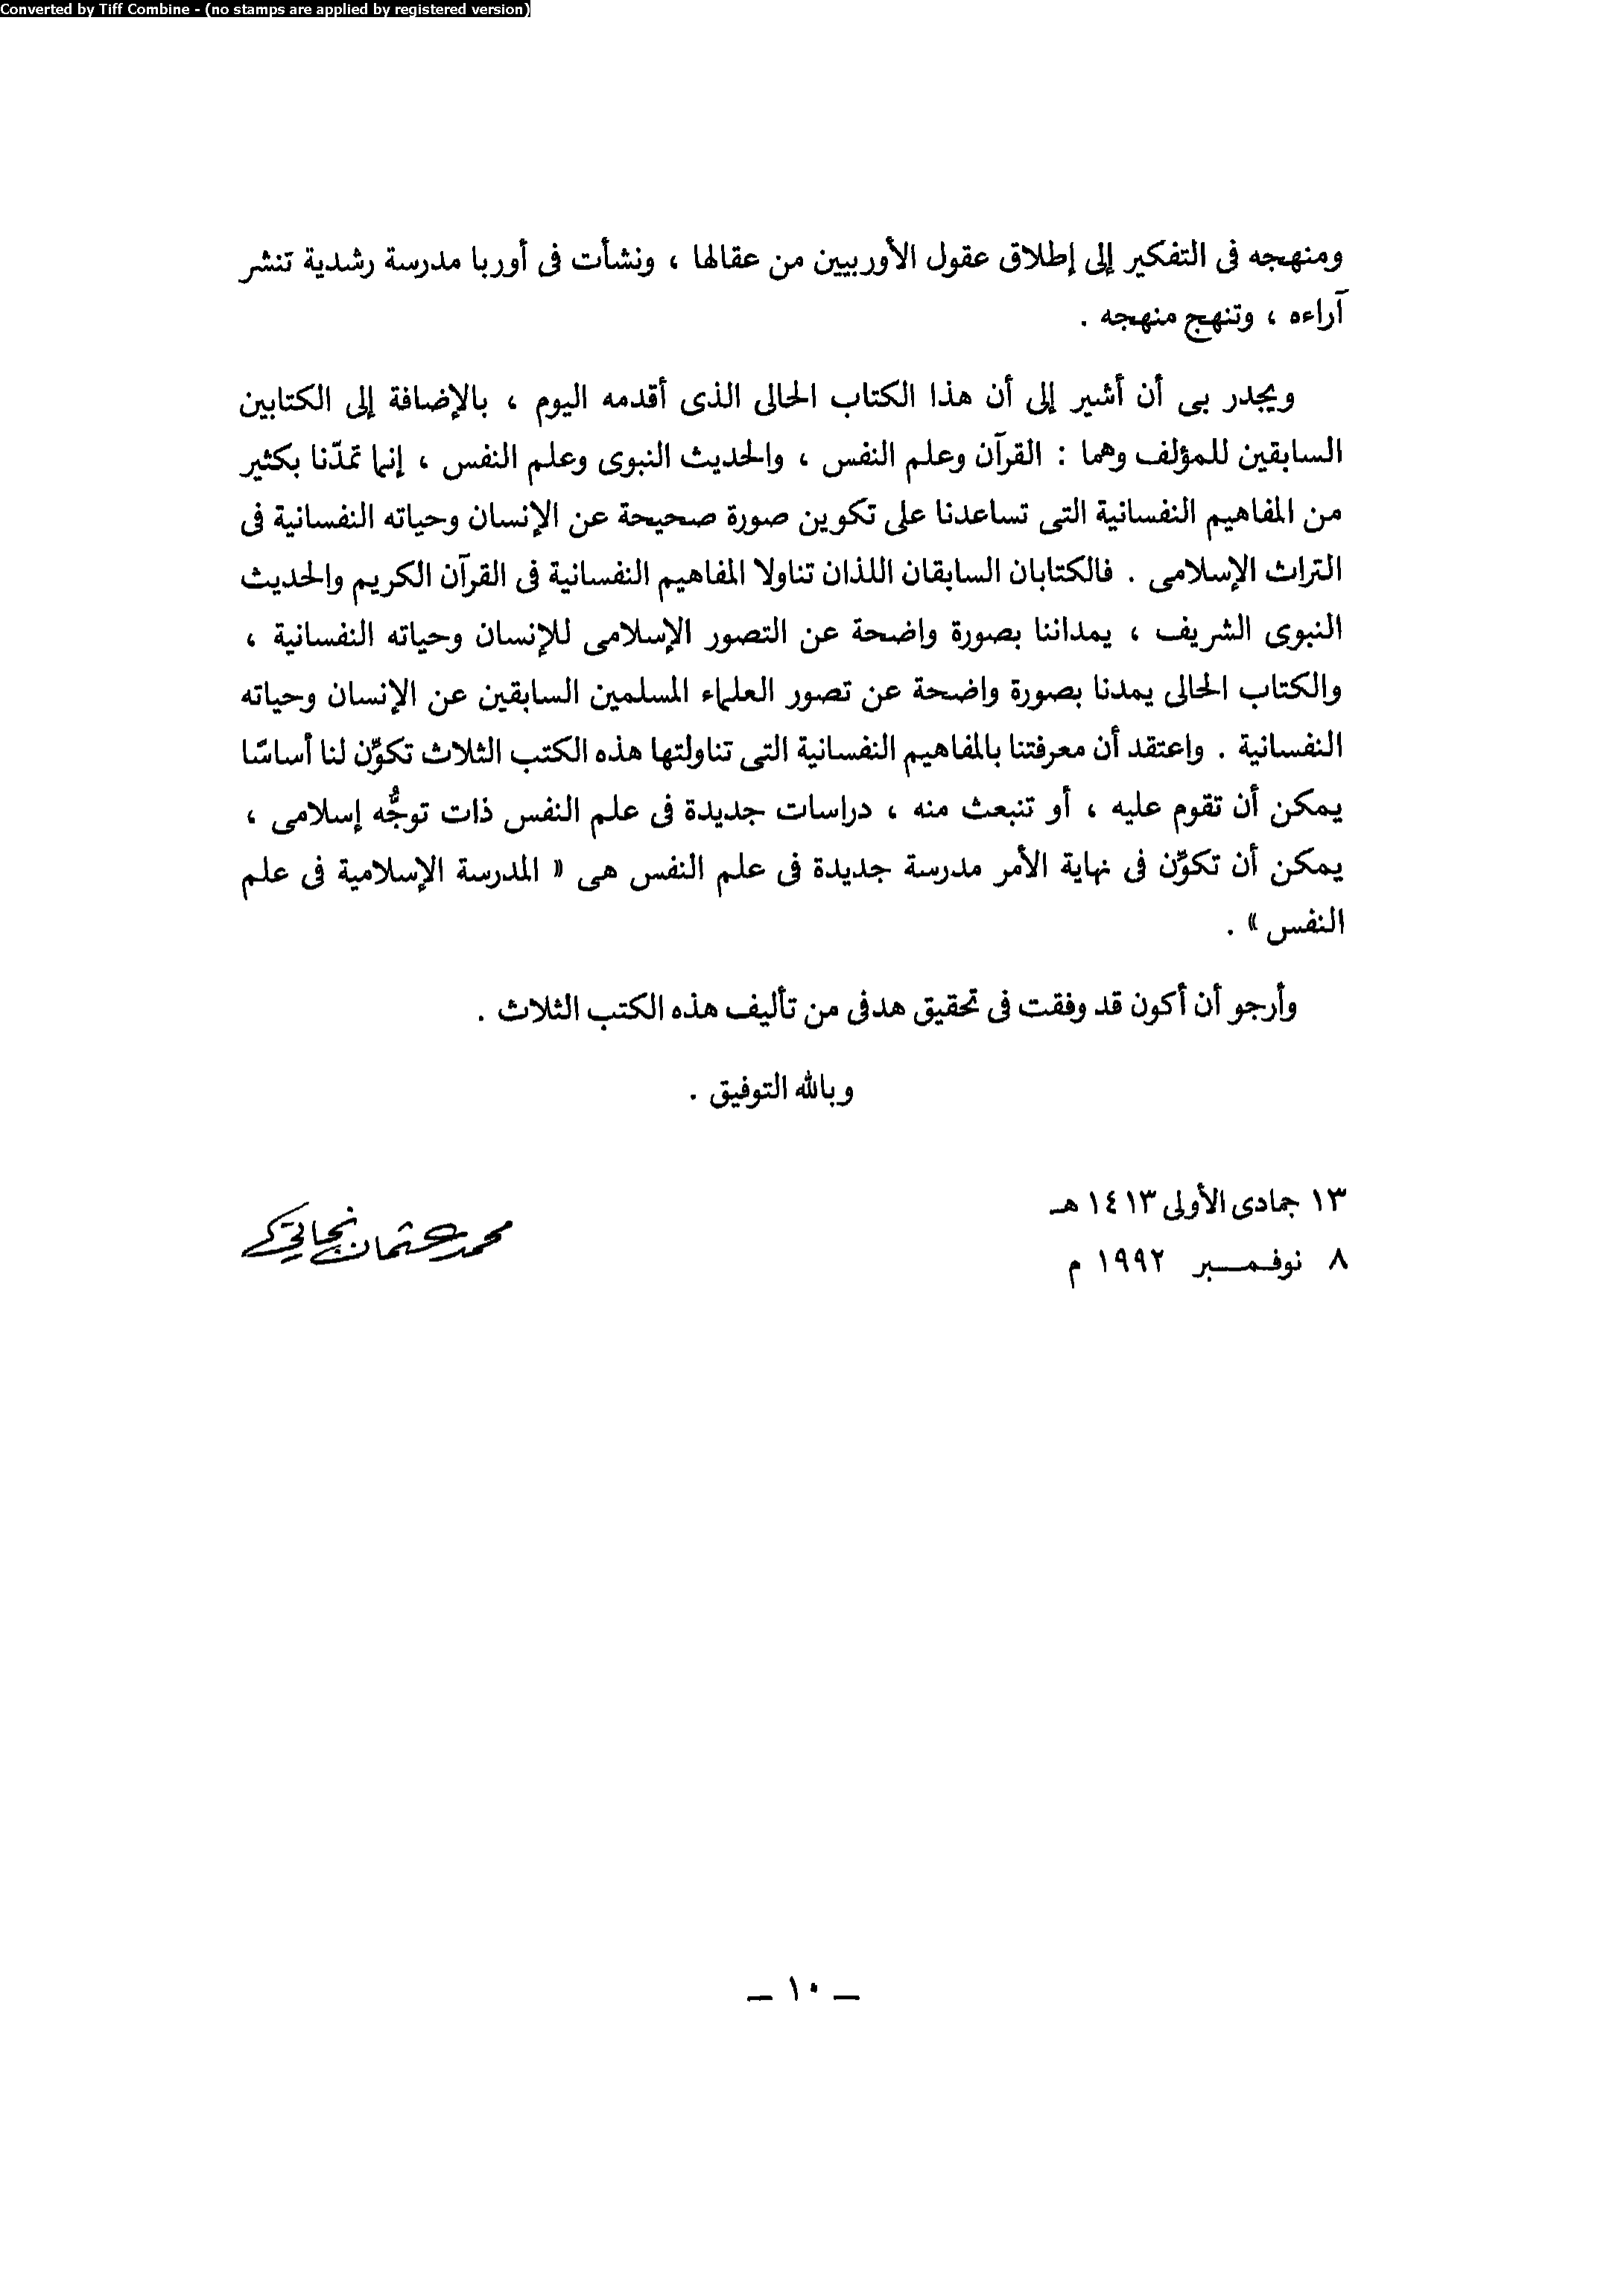 Converted by Tiff Combine - (no stamps are applied by registered version)
ومنهجه فى التفكير إلى إطلاق عقول الأوربيين من عقالها ، ونشأت فى أوربا مدرسة رشدية تنشر
آراءه ، وتنهج منهجه .
ويجدر بى أن أشير إلى أن هذا الكتاب الحالى الذى أقدمه اليوم ، بالإضافة إلى الكتابين
السابقين للمؤلف وهما : القرآن وعلم النفس ، والحديث النبوى وعلم النفس ، إنما تمدّنا بكثير
من المفاهيم النفسانية التى تساعدنا على تكوين صورة صحيحة عن الإنسان وحياته النفسانية فى
التراث الإسلامى . فالكتابان السابقان اللذان تناولا المفاهيم النفسانية فى القرآن الكريم والحديث
النبوى الشريف ، يمداننا بصورة واضحة عن التصور الإسلامى للإنسان وحياته النفسانية ،
والكتاب الحالى يمدنا بصورة واضحة عن تصور العلماء المسلمين السابقين عن الإنسان وحياته
النفسانية . واعتقد أن معرفتنا بالمفاهيم النفسانية التى تناولتها هذه الكتب الثلاث تكوِّن لنا أساسًا
يمكن أن تقوم عليه ، أو تنبعث منه ، دراسات جديدة فى علم النفس ذات توجُّه إسلامى ،
يمكن أن تكوِّن فى نهاية الأمر مدرسة جديدة فى علم النفس هى « المدرسة الإسلامية فى علم
النفس » .
وأرجو أن أكون قد وفقت فى تحقيق هدفى من تأليف هذه الكتب الثلاث .
وبالله التوفيق .
١٣ جمادى الأولى ١٤١٣ هـ
٨ نوفمبر ١٩٩٢ م
محمد عثمان نجاتى
— ١٠ —